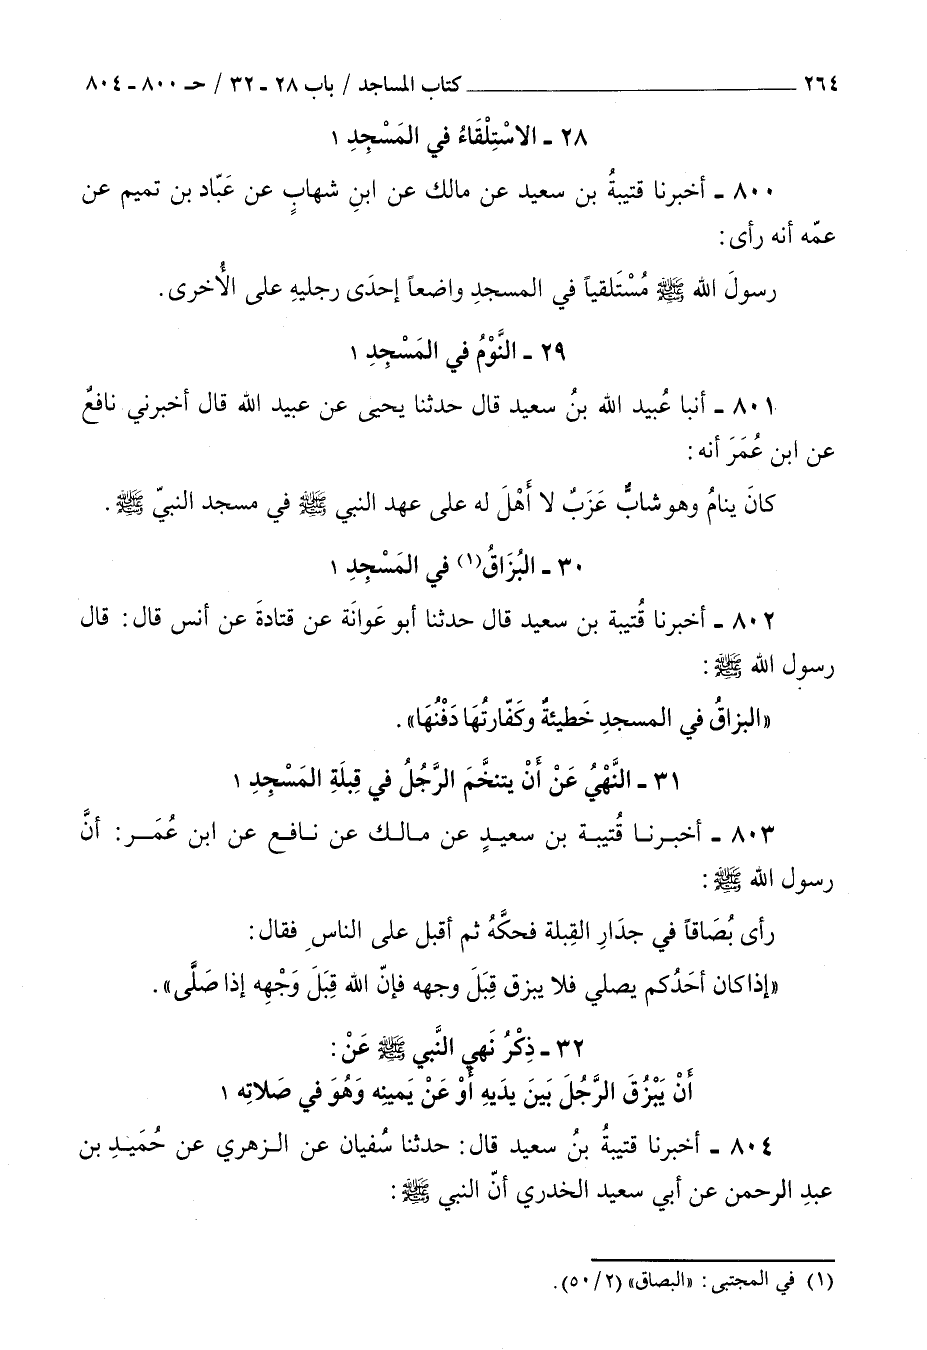 ٢٦٤ ــــــــــــــــ كتاب المساجد / باب ٢٨ ـ ٣٢ / حـ ٨٠٠ ـ ٨٠٤
٢٨ ـ الاسْتِلْقَاءُ في المَسْجِدِ ١
٨٠٠ ـ أخبرنا قتيبةُ بن سعيد عن مالك عن ابنِ شهابٍ عن عَبّاد بن تميم عن
عمّه أنه رأى:
رسولَ الله ﷺ مُسْتَلقياً في المسجدِ واضعاً إحدَى رجليهِ على الأُخرى.
٢٩ ـ النَّوْمُ في المَسْجِدِ ١
٨٠١ ـ أنبا عُبيد الله بنُ سعيد قال حدثنا يحيى عن عبيد الله قال أخبرني نافعٌ
عن ابن عُمَرَ أنه:
كانَ ينامُ وهو شابٌّ عَزَبٌ لا أَهْلَ له على عهد النبي ﷺ في مسجد النبيّ ﷺ.
٣٠ ـ البُزَاقُ(١) في المَسْجِدِ ١
٨٠٢ ـ أخبرنا قُتيبة بن سعيد قال حدثنا أبو عَوانَة عن قتادةَ عن أنس قال: قال
رسول الله ﷺ:
«البزاقُ في المسجدِ خَطيئةٌ وكَفّارتُهَا دَفْنُهَا».
٣١ ـ النَّهْيُ عَنْ أَنْ يتنخَّمَ الرَّجُلُ في قِبلَةِ المَسْجِدِ ١
٨٠٣ ـ أخبرنا قُتيبة بن سعيدٍ عن مالك عن نافع عن ابن عُمَر: أنَّ
رسول الله ﷺ:
رأى بُصَاقاً في جدَارِ القِبلة فحكَّهُ ثم أقبل على الناسِ فقال:
«إذا كان أحَدُكم يصلي فلا يبزق قِبَلَ وجهه فإنّ الله قِبَلَ وَجْهِه إذا صَلَّى».
٣٢ ـ ذِكْرُ نَهيِ النَّبي ﷺ عَنْ:
أَنْ يَبْزُقَ الرَّجُلَ بَينَ يدَيهِ أوْ عَنْ يَمينِه وَهُوَ في صَلاتِه ١
٨٠٤ ـ أخبرنا قتيبةُ بنُ سعيد قال: حدثنا سُفيان عن الزهري عن حُمَيدِ بن
عبدِ الرحمن عن أبي سعيد الخدري أنّ النبي ﷺ:
(١) في المجتبى: «البصاق» (٢/ ٥٠).